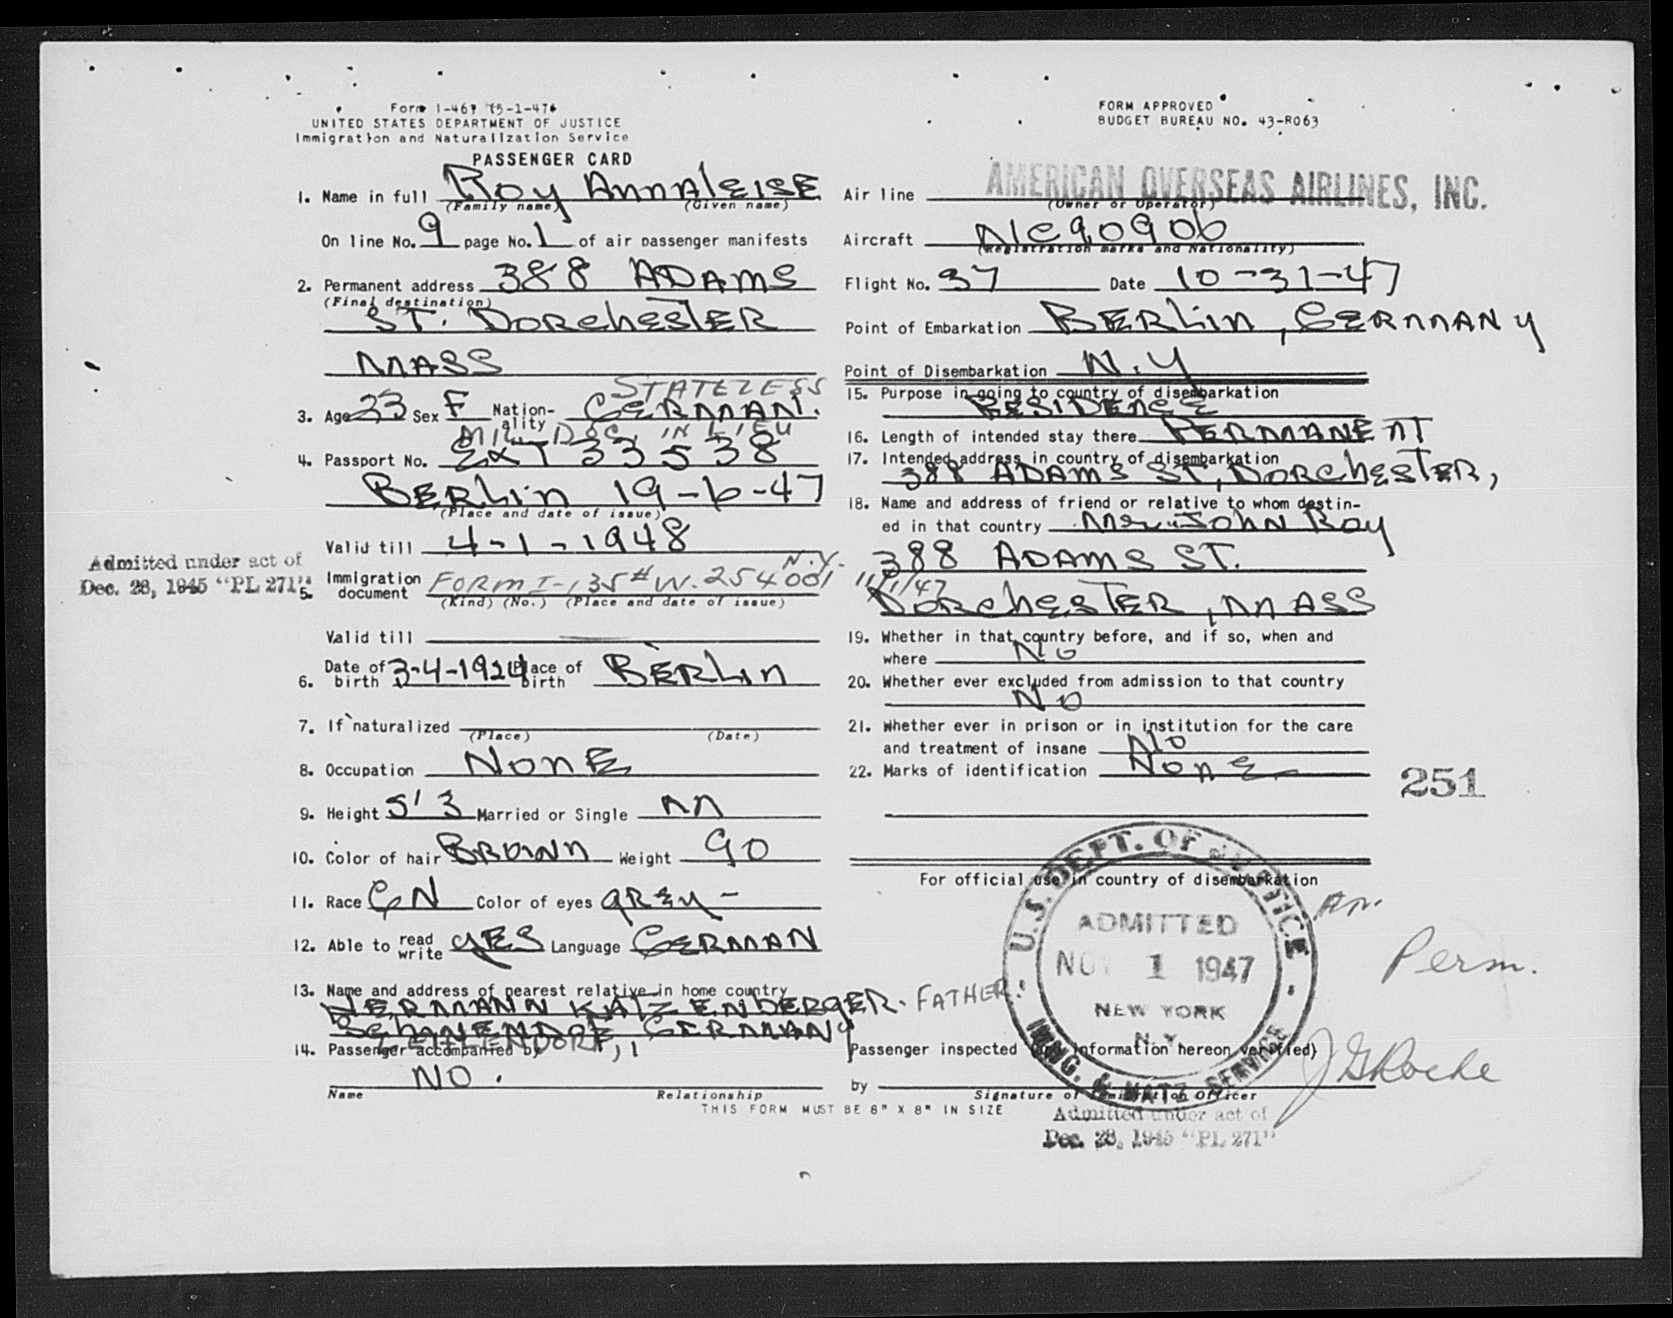 Form I-469 (5-1-47)
UNITED STATES DEPARTMENT OF JUSTICE
Immigration and Naturalization Service
PASSENGER CARD
1. Name in full Roy AnnAlEISE
(Family name) (Given name)
On line No. 9 page No. 1 of air passenger manifests
2. Permanent address 388 ADAMS
(Final destination)
ST. DORChESTER
MASS
STATELESS
3. Age 23 Sex F Nation-ality GERMAN.
MIL. DOC. IN LIEU
4. Passport No. EXT 33538
BERLin 19-6-47
(Place and date of issue)
Valid till 4-1-1948
Admitted under act of
Dec. 28, 1945 "PL 271"
N.Y.
5. Immigration document FORM I-135 # W.254001 11/1/47
(Kind) (No.) (Place and date of issue)
Valid till
6. Date of birth 3-4-1924 Place of birth BERLin
7. If naturalized
(Place) (Date)
8. Occupation NonE
9. Height 5'3 Married or Single M
10. Color of hair BROWn Weight 90
11. Race GN Color of eyes GREy -
12. Able to read write yES Language GERMAN
13. Name and address of nearest relative in home country
HERMANN KATZENBERGER. FATHER.
GERMANy
14. Passenger accompanied by
NO.
Name Relationship
THIS FORM MUST BE 8" X 8" IN SIZE
FORM APPROVED
BUDGET BUREAU NO. 43-R063
Air line AMERICAN OVERSEAS AIRLINES, INC.
(Owner or Operator)
Aircraft NC90906
(Registration marks and Nationality)
Flight No. 37 Date 10-31-47
Point of Embarkation BERLin, GERMANy
Point of Disembarkation N.y
15. Purpose in going to country of disembarkation
RESIDENCE
16. Length of intended stay there PERMANENT
17. Intended address in country of disembarkation
388 ADAMS ST, DORChESTER,
18. Name and address of friend or relative to whom destin-
ed in that country Mr. JOHN Roy
388 ADAMS ST.
DORChESTER, MASS
19. Whether in that country before, and if so, when and
where No
20. Whether ever excluded from admission to that country
No
21. Whether ever in prison or in institution for the care
and treatment of insane No
22. Marks of identification NonE
251
For official use in country of disembarkation
U.S. DEPT. OF JUSTICE
ADMITTED
NOV 1 1947
NEW YORK
N.Y.
IMMG. & NATZ. SERVICE
Perm.
Passenger inspected (and information hereon verified)
by J G Roche
Signature of Immigration Officer
Admitted under act of
Dec. 28, 1945 "PL 271"